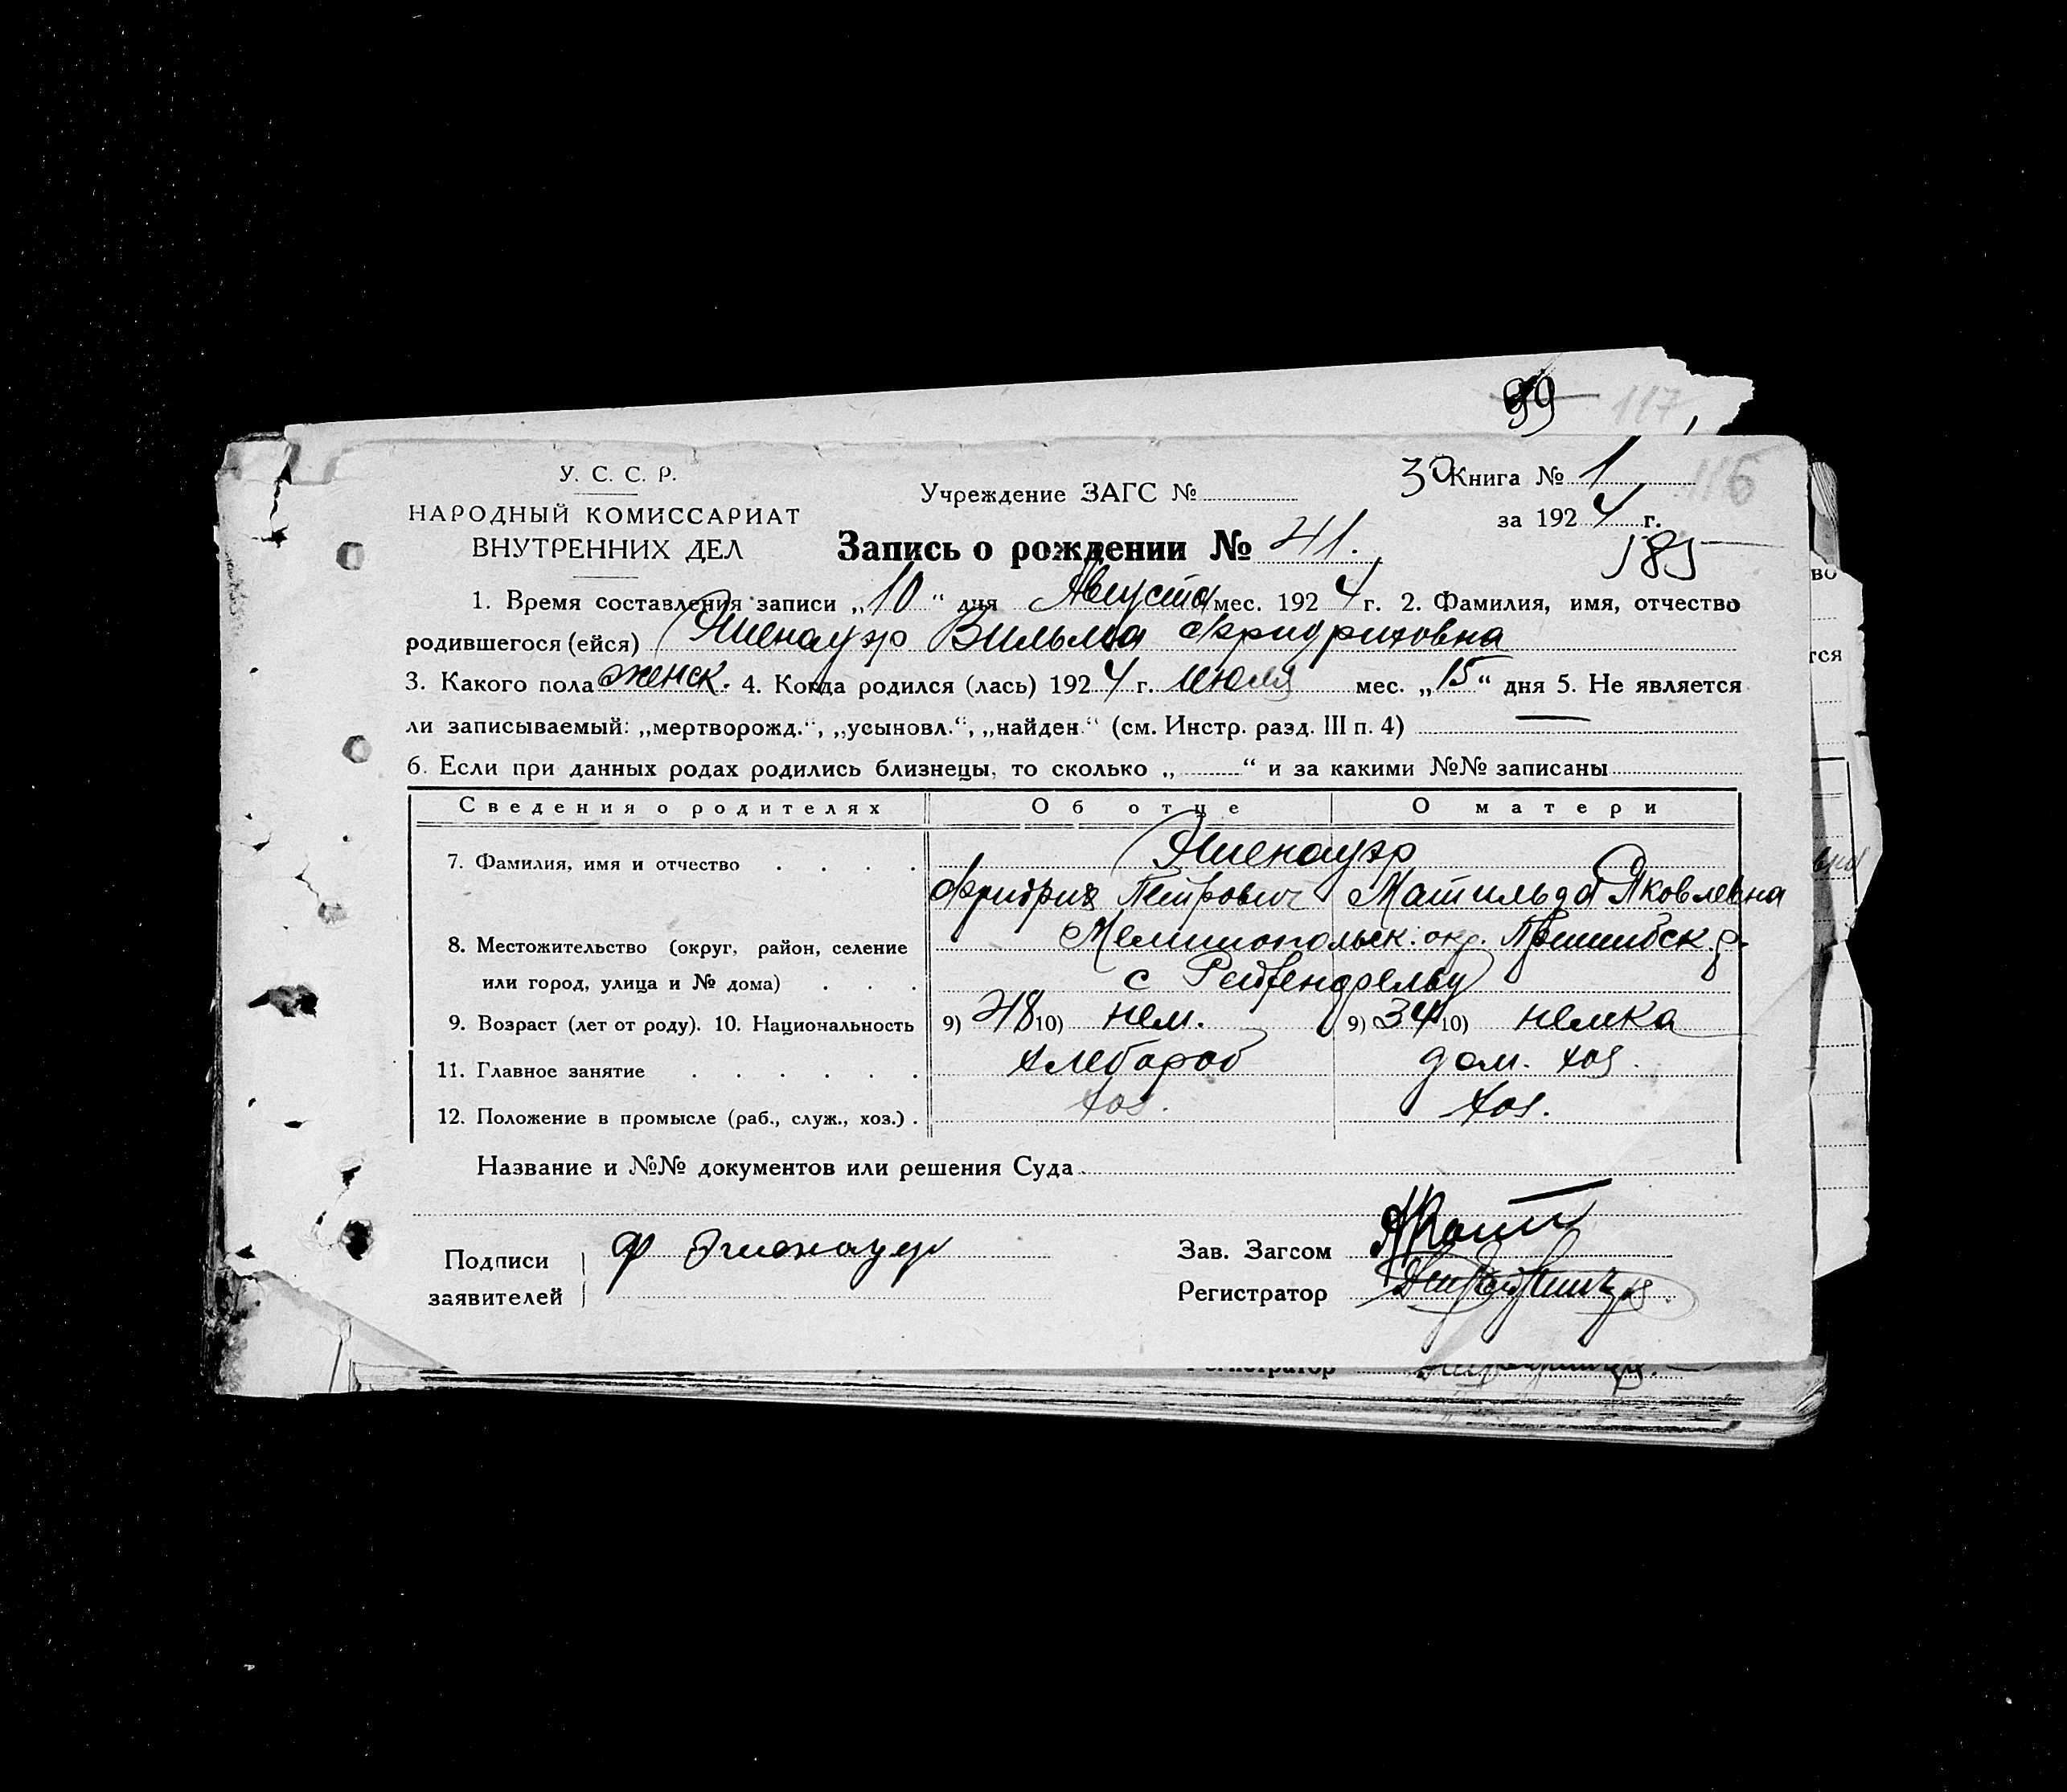 99 117
У. С. С. Р.
НАРОДНЫЙ КОМИССАРИАТ
ВНУТРЕННИХ ДЕЛ
Учреждение ЗАГС №
30 Книга № 1 116
за 1924 г.
Запись о рождении № 41.
185
1. Время составления записи „10“ дня Августа мес. 1924 г. 2. Фамилия, имя, отчество
родившегося (ейся) Эйенауэр Вильма Фридриховна
3. Какого пола женск. 4. Когда родился (лась) 1924 г. июля мес. „15“ дня 5. Не является
ли записываемый: „мертворожд.“, „усыновл.“, „найден.“ (см. Инстр. разд. III п. 4) —
6. Если при данных родах родились близнецы, то сколько „ “ и за какими №№ записаны
Сведения о родителях Об отце О матери
7. Фамилия, имя и отчество Эйенауэр
Фридрих Петрович Матильда Яковлевна
8. Местожительство (округ, район, селение Мелитопольск. окр. Пришибск. р.
или город, улица и № дома) с
9. Возраст (лет от роду). 10. Национальность 9) 48 10) нем. 9) 34 10) немка
11. Главное занятие хлебороб дом. хоз.
12. Положение в промысле (раб., служ., хоз.) хоз. хоз.
Название и №№ документов или решения Суда
Подписи
заявителей
Ф
Зав. Загсом
Регистратор
Регистратор